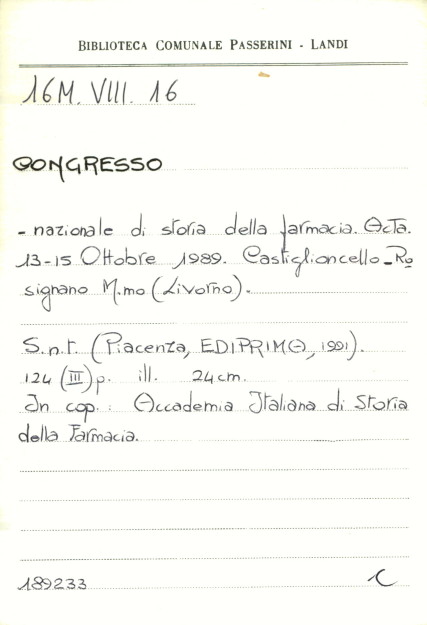 BIBLIOTECA COMUNALE PASSERINI - LANDI
16M. VIII. 16
CONGRESSO
- nazionale di storia della farmacia. Acta.
13-15 Ottobre 1989. Castiglioncello-Ro
signano M.mo (Livorno).
S.n.t. (Piacenza, EDIPRIMA, 1991).
124 (III) p. ill. 24 cm.
In cop.: Accademia Italiana di Storia
della Farmacia.
189233 C